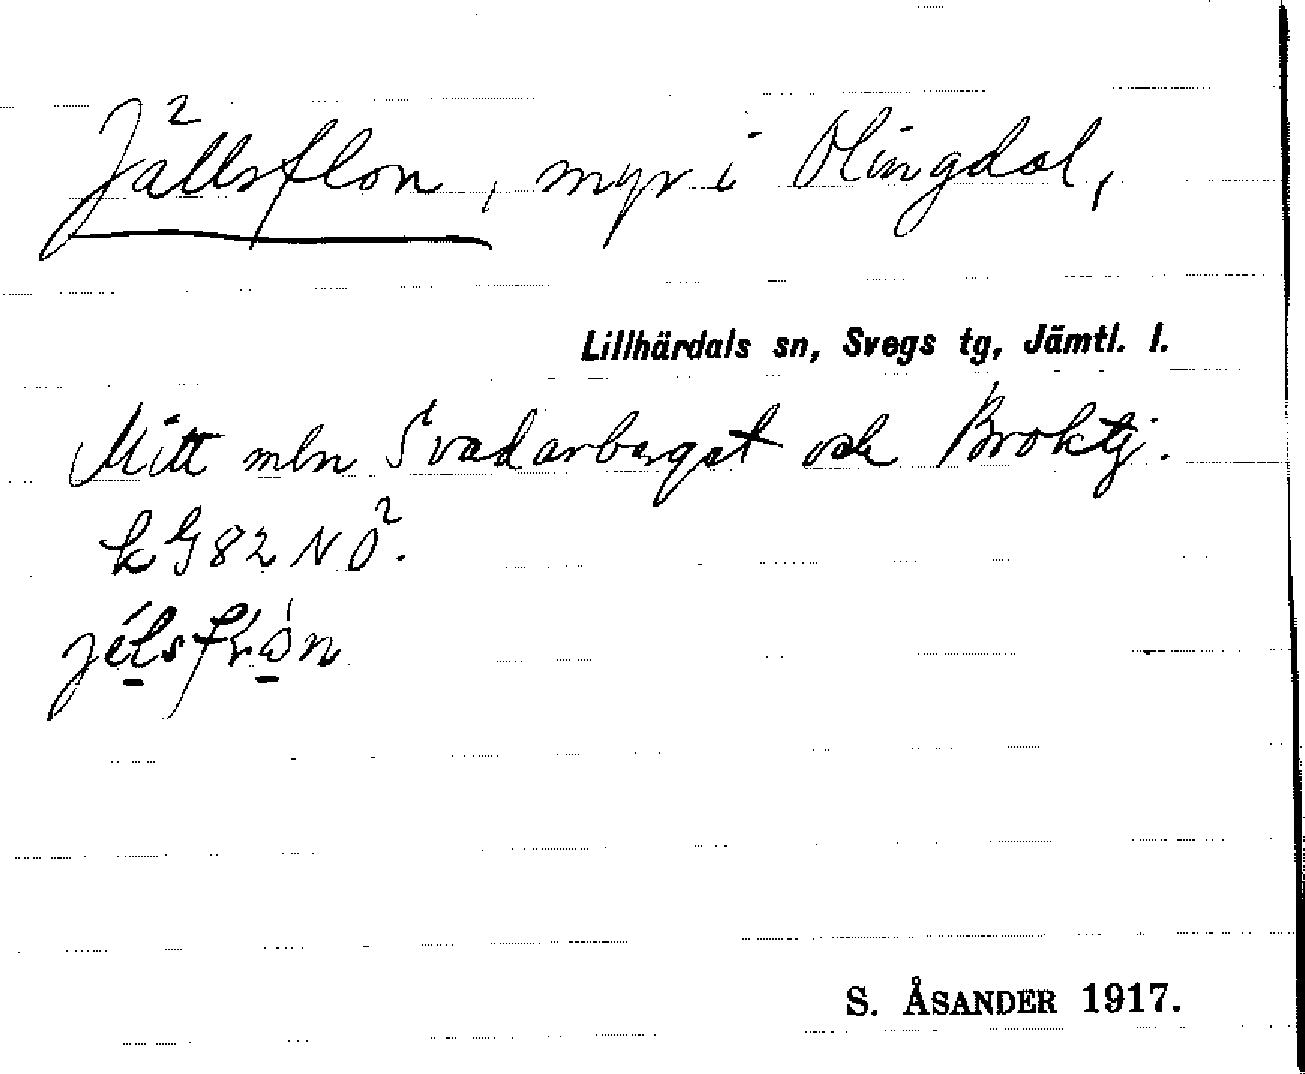 Jällsflon, myr i Olingdal,
Lillhärdals sn, Svegs tg, Jämtl. l.
Mitt mln Svadarberget och Broktj.
k G 82 NÖ.
S. ÅSANDER 1917.